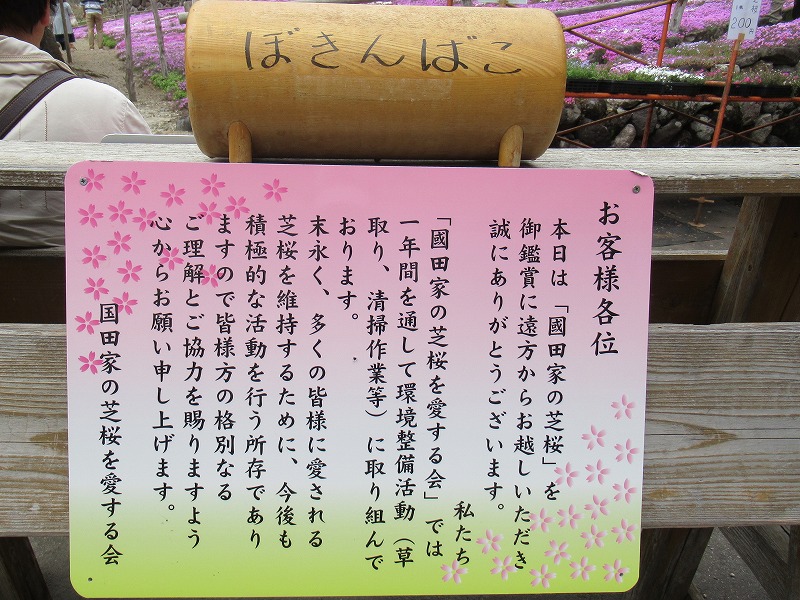 ぼきんばこ
200円
お客様各位
本日は「國田家の芝桜」を
御鑑賞に遠方からお越しいただき
誠にありがとうございます。
私たち
「國田家の芝桜を愛する会」では
一年間を通して環境整備活動（草
取り、清掃作業等）に取り組んで
おります。
末永く、多くの皆様に愛される
芝桜を維持するために、今後も
積極的な活動を行う所存であり
ますので皆様方の格別なる
ご理解とご協力を賜りますよう
心からお願い申し上げます。
国田家の芝桜を愛する会